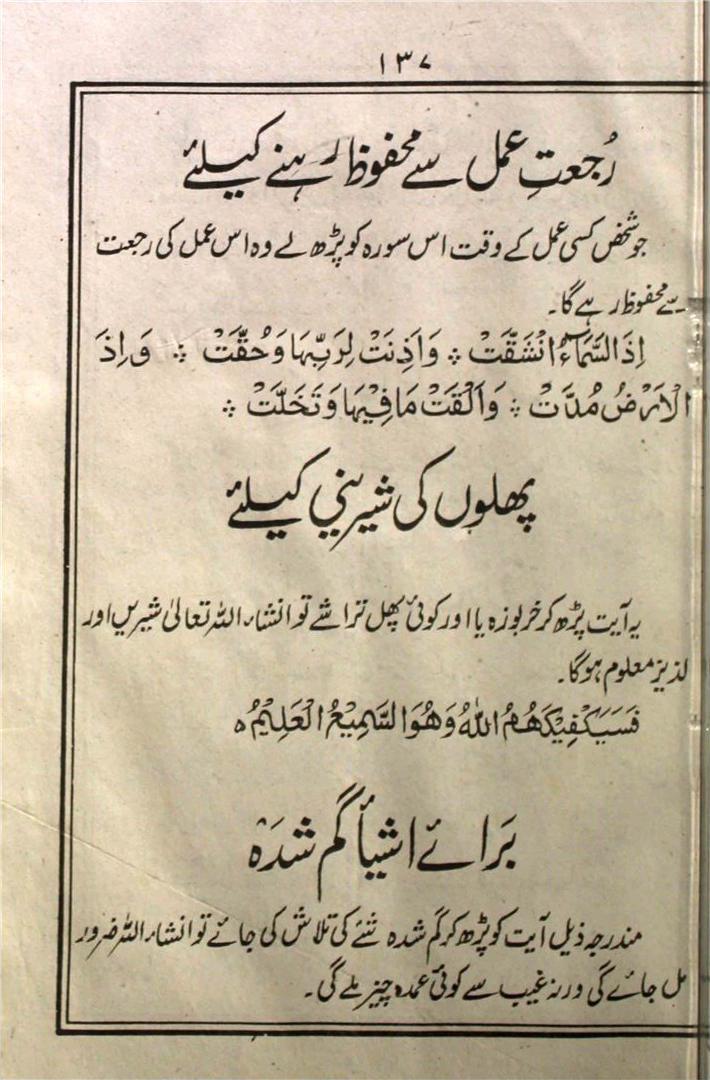 ۱۳۷
رُجعتِ عمل سے محفوظ رہنے کیلئے
جو شخص کسی عمل کے وقت اس سورہ کو پڑھ لے وہ اس عمل کی رجعت
سے محفوظ رہے گا۔
اِذَا السَّمَآءُ انْشَقَّتْ ۞ وَاَذِنَتْ لِرَبِّهَا وَحُقَّتْ ۞ وَاِذَ
الْاَرْضُ مُدَّتْ ۞ وَاَلْقَتْ مَا فِيْهَا وَتَخَلَّتْ ۞
پھلوں کی شیرینی کیلئے
یہ آیت پڑھ کر خربوزہ یا اور کوئی پھل تراشے تو انشاء اللہ تعالیٰ شیریں اور
لذیز معلوم ہوگا۔
فَسَيَكْفِيْكَهُمُ اللّٰهُ وَهُوَ السَّمِيْعُ الْعَلِيْمُ ہ
بَرائے اشیأ گم شدہ
مندرجہ ذیل آیت کو پڑھ کر گم شدہ شئے کی تلاش کی جائے تو انشاء اللہ ضرور
مل جائے گی ورنہ غیب سے کوئی عمدہ چیز ملے گی۔